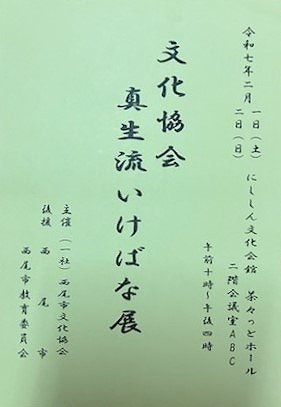 令和七年二月 一日（土） にししん文化会館 茶々っとホール
二日（日） 二階会議室ABC
午前十時～午後四時
文化協会
真生流いけばな展
主催 （一社）西尾市文化協会
後援 西尾市
西尾市教育委員会